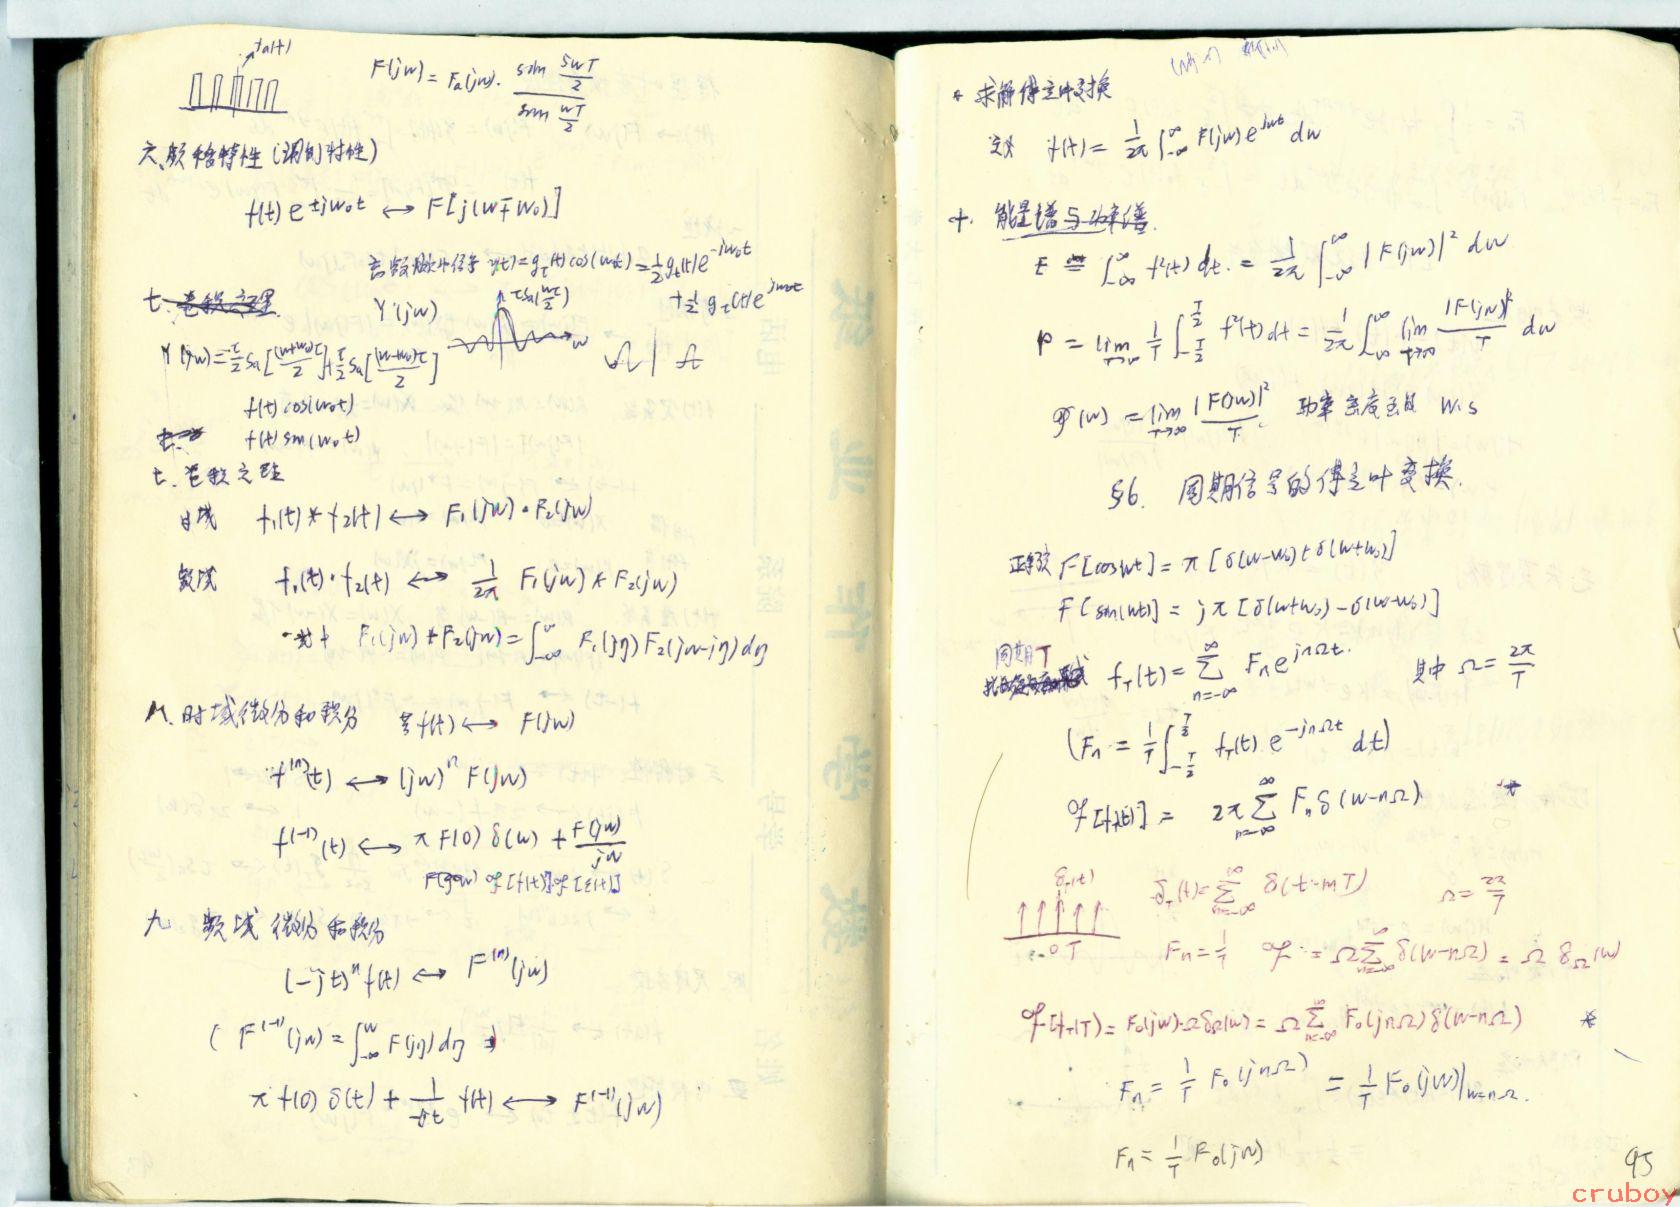 fa(t)
F(jw) = Fa(jw)· sin 5wT/2 / sin wT/2
六、频移特性(调制特性)
f(t) e^{±jw₀t} ↔ F[j(w∓w₀)]
高频脉冲信号 y(t)=g_τ(t)cos(w₀t)=½g_τ(t)e^{-jw₀t}
+½ g_τ(t)e^{jw₀t}
七、卷积定理
Y(jw)
τSa(wτ/2)
w
Y(jw)=τ/2 Sa[(w+w₀)τ/2]+τ/2 Sa[(w-w₀)τ/2]
f(t) cos(w₀t)
f(t) sin(w₀t)
七、卷积定理
时域 f₁(t)*f₂(t) ↔ F₁(jw)·F₂(jw)
频域 f₁(t)·f₂(t) ↔ 1/2π F₁(jw)*F₂(jw)
F₁(jw)*F₂(jw)=∫_{-∞}^{∞} F₁(jη)F₂(jw-jη)dη
八、时域微分和积分 若f(t) ↔ F(jw)
f^{(n)}(t) ↔ (jw)^n F(jw)
f^{(-1)}(t) ↔ πF(0)δ(w) + F(jw)/jw
[f(t)] [ε(t)]
九 频域微分和积分
(-jt)^n f(t) ↔ F^{(n)}(jw)
( F^{(-1)}(jw)=∫_{-∞}^{w} F(jη)dη
πf(0)δ(t)+1/-jt f(t) ↔ F^{(-1)}(jw)
* 求解傅立叶变换
定义 f(t)=1/2π ∫_{-∞}^{∞} F(jw)e^{jwt} dw
十. 能量谱与功率谱.
E = ∫_{-∞}^{∞} f²(t)dt. = 1/2π ∫_{-∞}^{∞} |F(jw)|² dw
P = lim_{T→∞} 1/T ∫_{-T/2}^{T/2} f²(t)dt = 1/2π ∫_{-∞}^{∞} lim_{T→∞} |F(jw)|²/T dw
𝒫(w) = lim_{T→∞} |F(jw)|²/T. 功率密度函数 W·s
§6. 周期信号的傅立叶变换.
正余弦 F[coswt]=π[δ(w-w₀)+δ(w+w₀)]
F[sin(wt)] = jπ[δ(w+w₀)-δ(w-w₀)]
周期T
f_T(t)=∑_{n=-∞}^{∞} F_n e^{jnΩt}. 其中 Ω=2π/T
(F_n = 1/T ∫_{-T/2}^{T/2} f_T(t) e^{-jnΩt} dt)
ℱ[f_T(t)] = 2π∑_{n=-∞}^{∞} F_nδ(w-nΩ) *
δ_T(t)
δ_T(t)=∑_{m=-∞}^{∞} δ(t-mT) Ω=2π/T
0 T
F_n=1/T ℱ = Ω∑_{n=-∞}^{∞} δ(w-nΩ) = Ω δ_Ω(w)
ℱ[f_T(T)=F₀(jw)·Ωδ_Ω(w)=Ω∑_{n=-∞}^{∞} F₀(jnΩ)δ(w-nΩ) *
F_n= 1/T F₀(jnΩ) = 1/T F₀(jw)|_{w=nΩ}.
F_n= 1/T F₀(jw)
95
cruboy